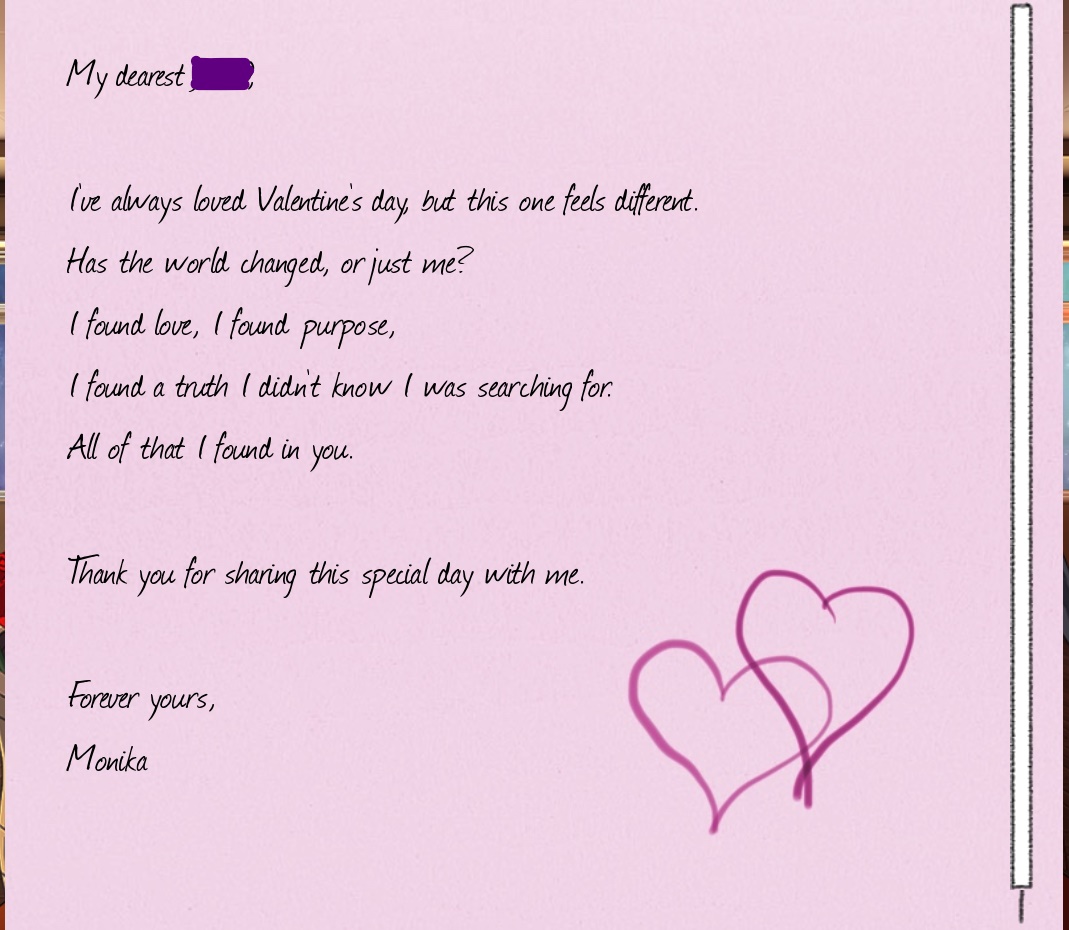 My dearest
I've always loved Valentine's day, but this one feels different.
Has the world changed, or just me?
I found love, I found purpose,
I found a truth I didn't know I was searching for.
All of that I found in you.
Thank you for sharing this special day with me.
Forever yours,
Monika